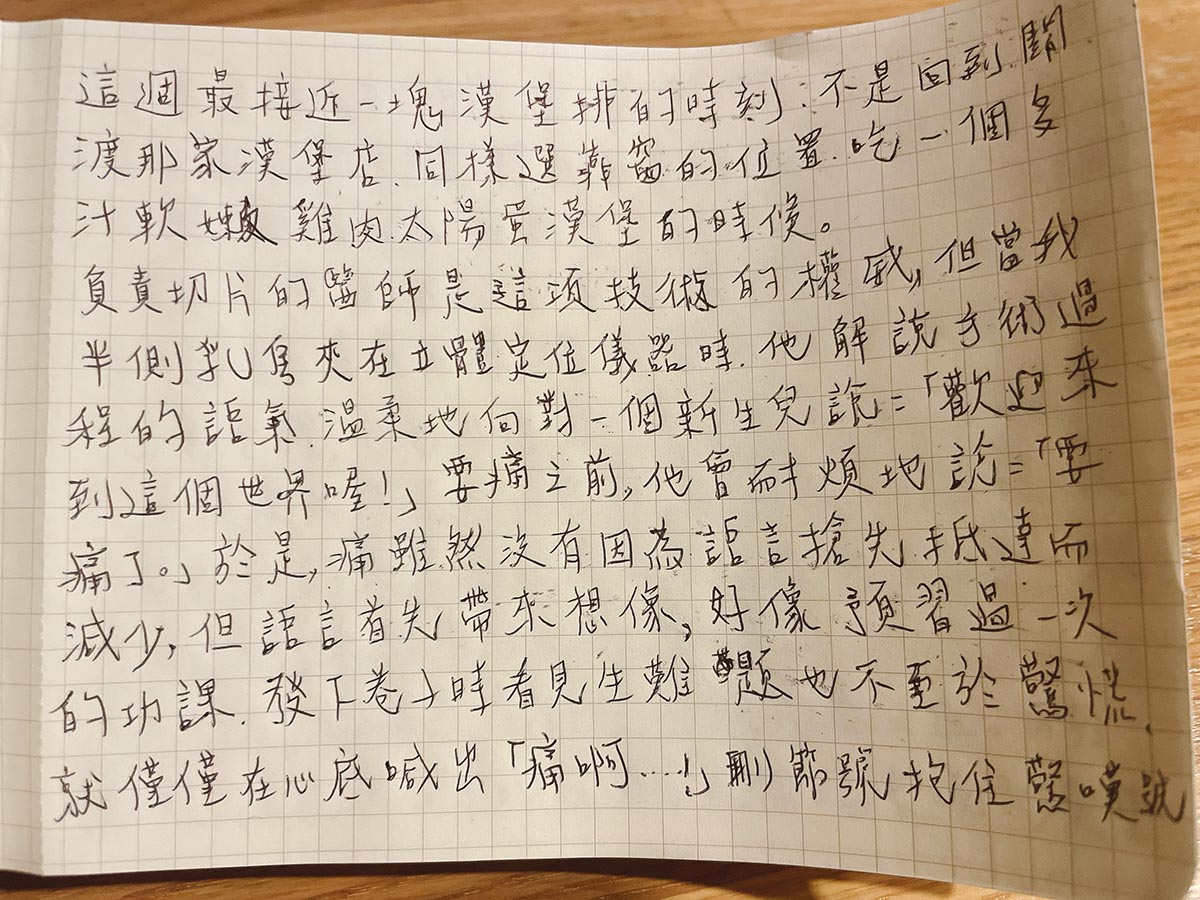 這週最接近一塊漢堡排的時刻,不是回到關
渡那家漢堡店,同樣選靠窗的位置,吃一個多
汁軟嫩雞肉太陽蛋漢堡的時候。
負責切片的醫師是這項技術的權威,但當我
半側乳房夾在立體定位儀器時,他解說手術過
程的語氣,溫柔地向對一個新生兒說:「歡迎來
到這個世界喔!」要痛之前,他會耐煩地說:「要
痛了。」於是,痛雖然沒有因為語言搶先抵達而
減少,但語言首先帶來想像,好像預習過一次
的功課,發下卷子時看見生難題也不至於驚慌,
就僅僅在心底喊出「痛啊……!」刪節號抱住驚嘆號